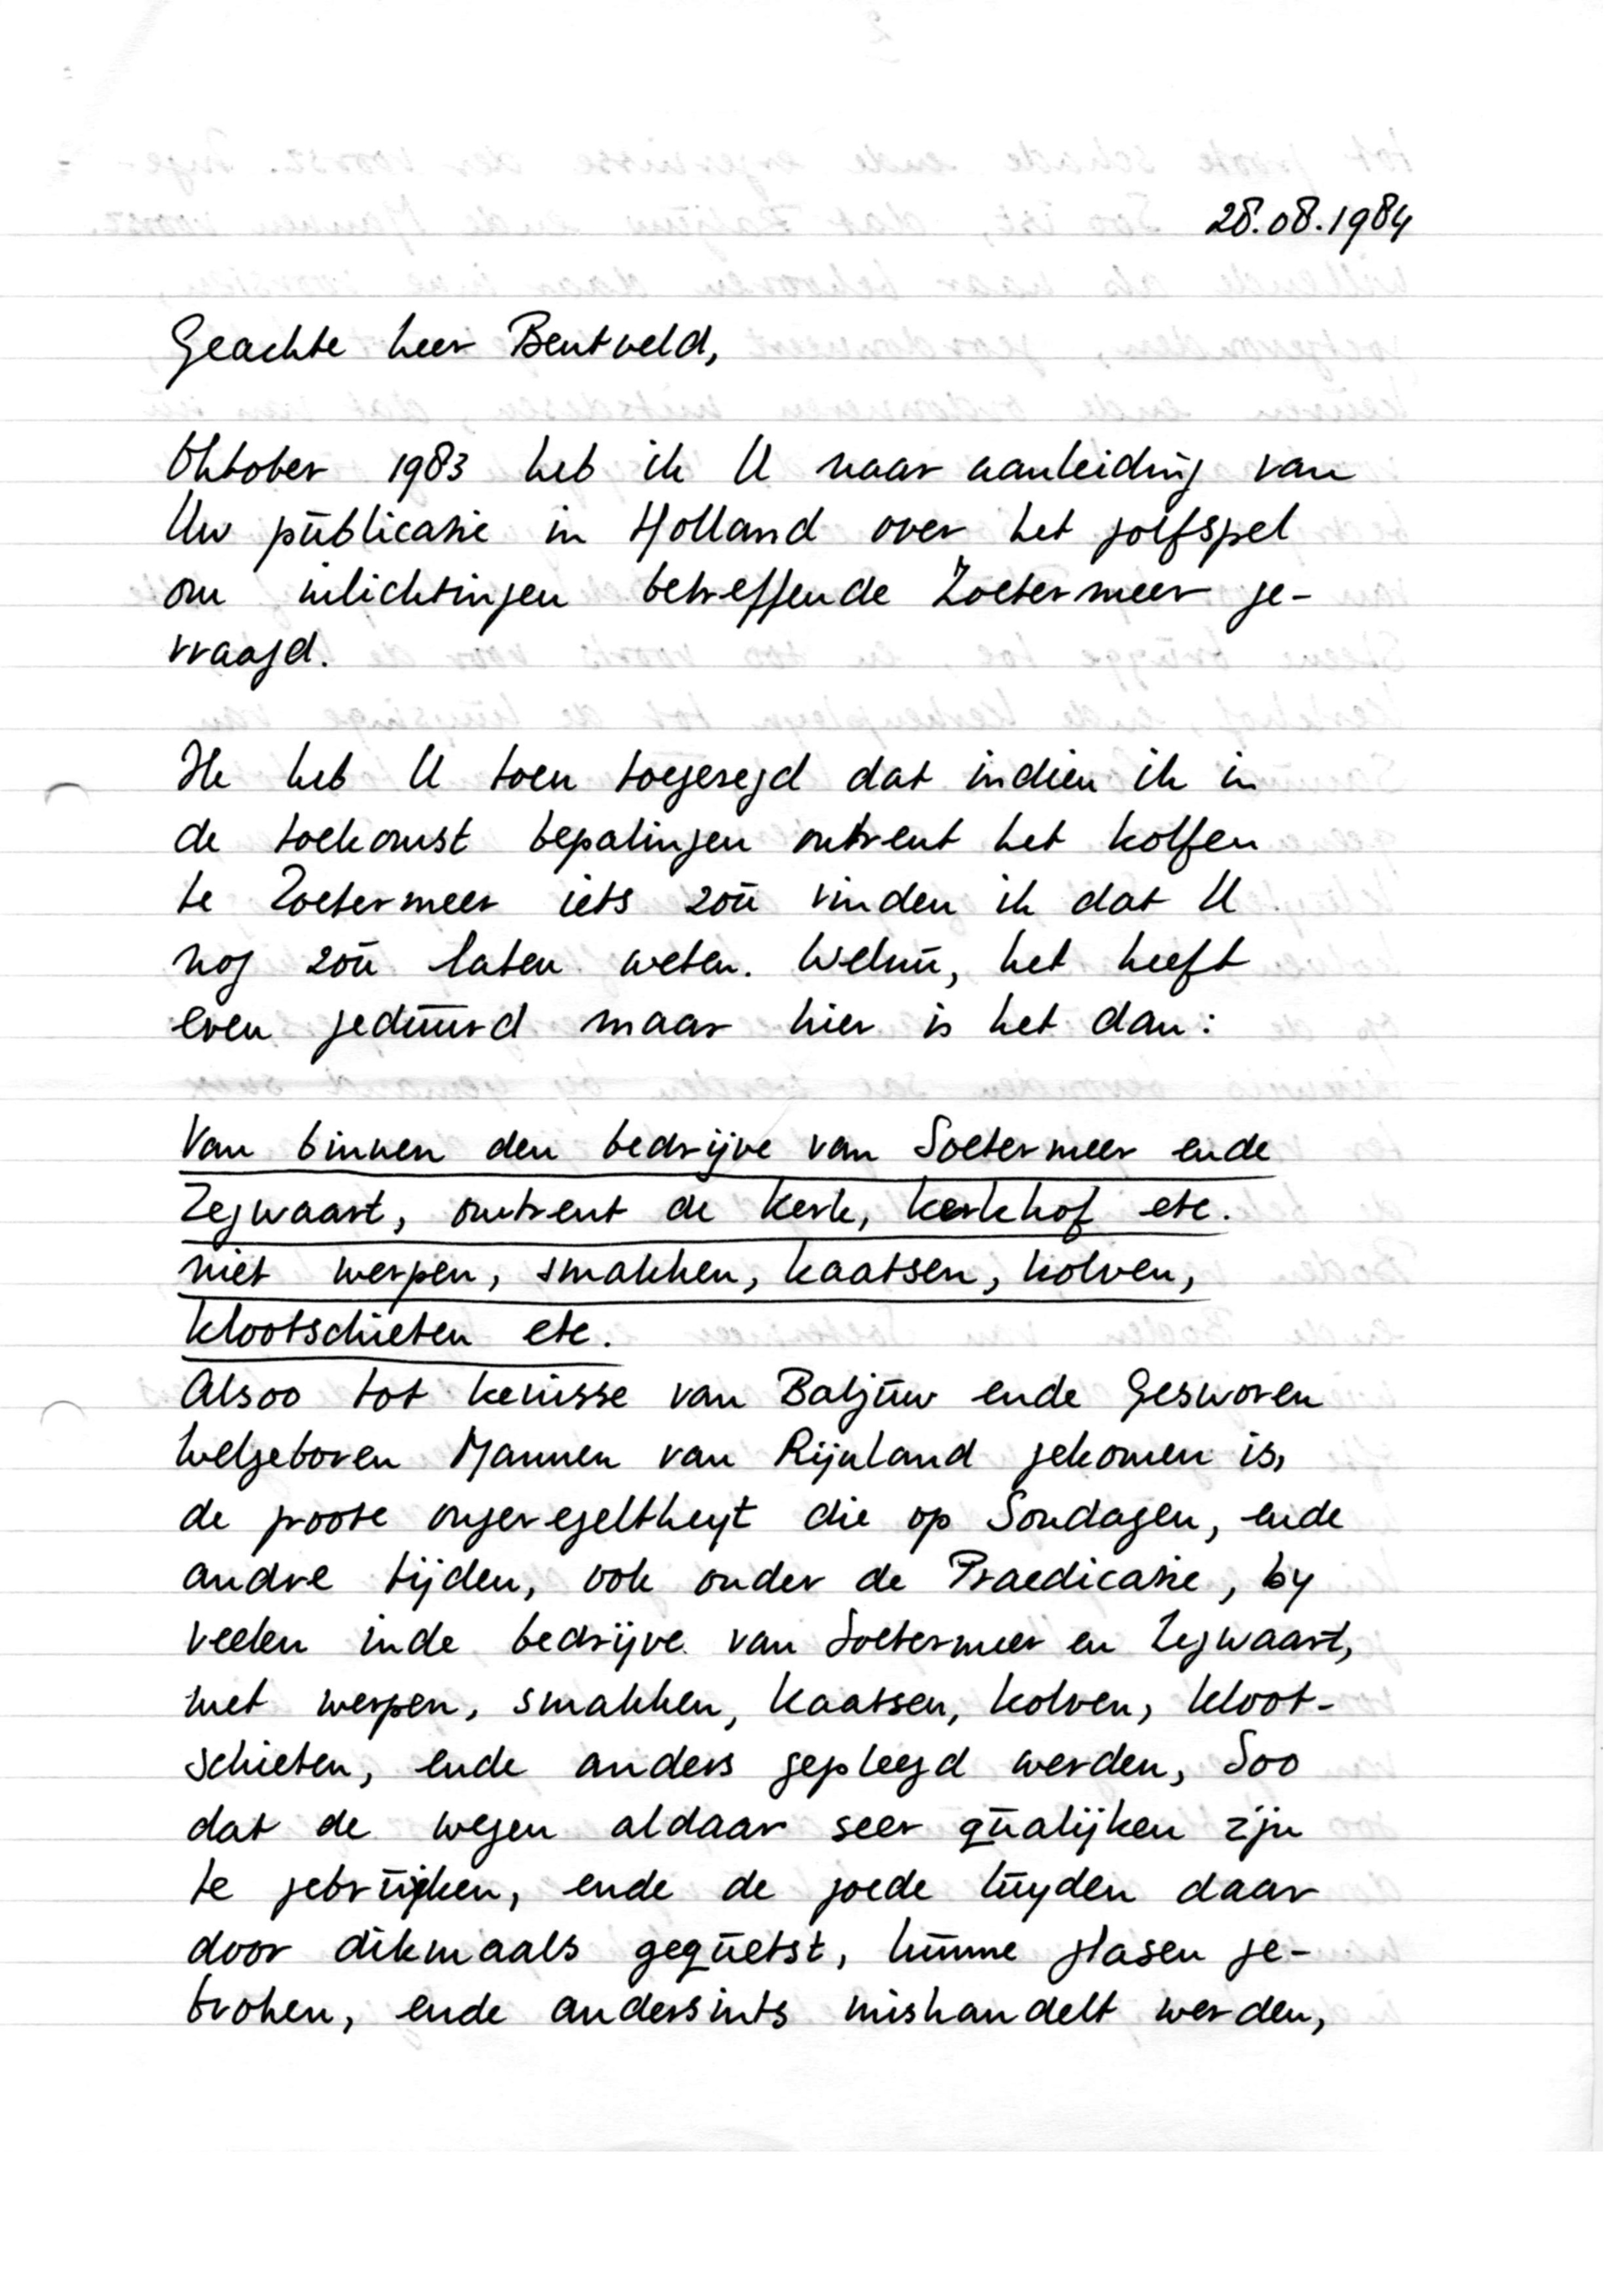 28.08.1984
Geachte heer Bentveld,
Oktober 1983 heb ik U naar aanleiding van
Uw publicatie in Holland over het golfspel
om inlichtingen betreffende Zoetermeer ge-
vraagd.
Ik heb U toen toegezegd dat indien ik in
de toekomst bepalingen omtrent het kolfen
te Zoetermeer iets zou vinden ik dat U
nog zou laten weten. Welnu, het heeft
even geduurd maar hier is het dan:
Van binnen den bedrijve van Soetermeer ende
Zegwaart, omtrent de Kerk, kerkhof etc.
niet werpen, smakken, kaatsen, kolven,
klootschieten etc.
Alsoo tot kenisse van Baljuw ende Gesworen
Welgeboren Mannen van Rijnland gekomen is,
de groote ongeregeltheyt die op Sondagen, ende
andre tijden, ook onder de Praedicatie, by
veelen inde bedrijve van Soetermeer en Zegwaart,
met werpen, smakken, kaatsen, kolven, kloot-
schieten, ende anders gepleegd werden, Soo
dat de wegen aldaar seer qualijken zijn
te gebruijken, ende de goede luyden daar
door dikmaals gequetst, hunne glasen ge-
broken, ende anderssints mishandelt werden,